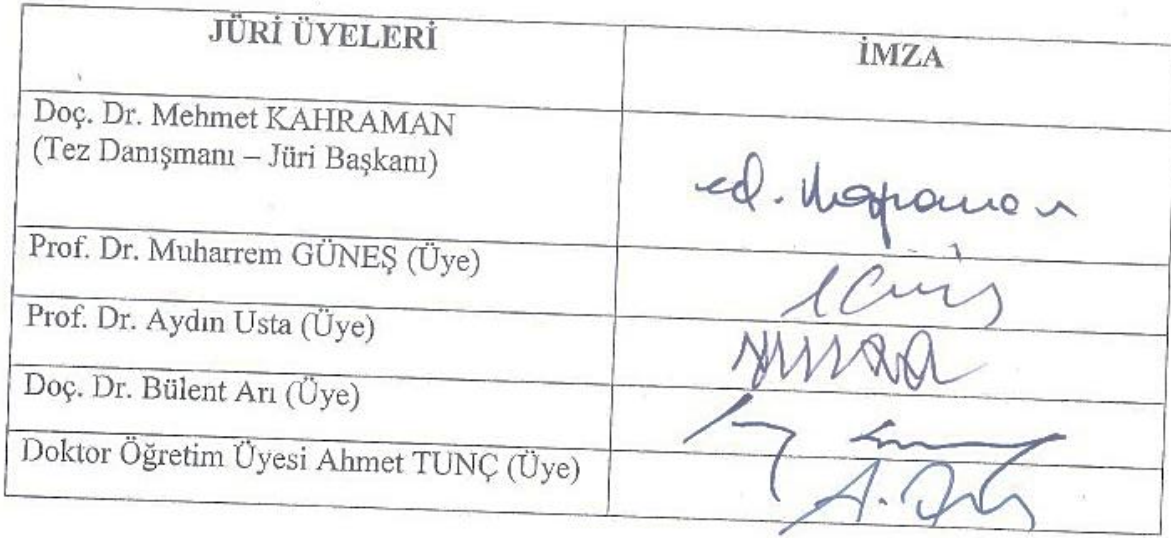 JÜRİ ÜYELERİ
İMZA
Doç. Dr. Mehmet KAHRAMAN
(Tez Danışmanı – Jüri Başkanı)
Prof. Dr. Muharrem GÜNEŞ (Üye)
Prof. Dr. Aydın Usta (Üye)
Doç. Dr. Bülent Arı (Üye)
Doktor Öğretim Üyesi Ahmet TUNÇ (Üye)